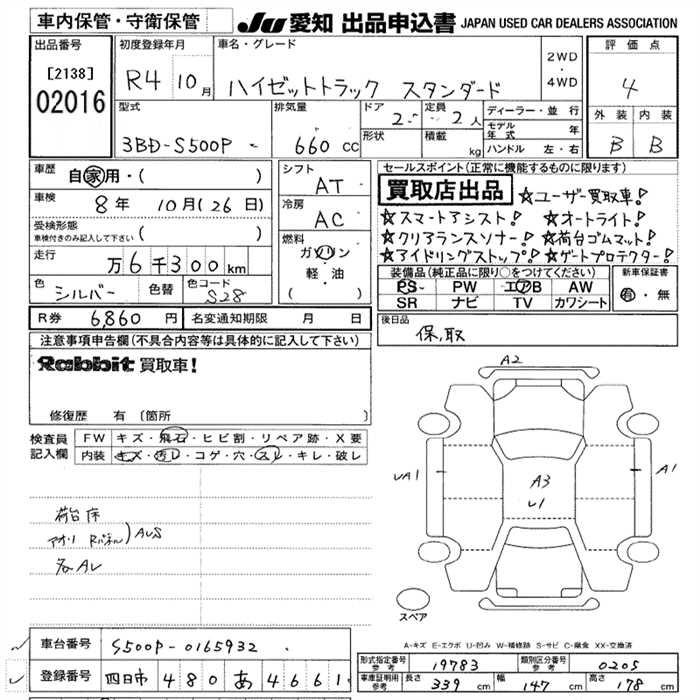 車内保管・守衛保管
JU 愛知 出品申込書 JAPAN USED CAR DEALERS ASSOCIATION
出品番号
[2138]
02016
初度登録年月
R4 10月
車名・グレード
ハイゼットトラック スタンダード
2WD
・
4WD
評価点
4
外装 内装
B B
型式
3BD-S500P
排気量
660 cc
ドア
2
形状
定員
2人
積載
kg
ディーラー・並行
モデル年式 年
ハンドル 左・右
車歴
自家用・( )
車検
8年 10月(26日)
受検形態
車検付きのみ記入して下さい ( )
走行
万6千300km
色
シルバー
色替
色コード
S28
シフト
AT
冷房
AC
燃料
ガソリン
軽・油
( )
セールスポイント(正常に機能するものに限ります)
買取店出品 ☆ユーザー買取車!
☆スマートアシスト! ☆オートライト!
☆クリアランスソナー! ☆荷台ゴムマット!
☆アイドリングストップ! ☆ゲートプロテクター!
装備品(純正品に限り○をつけてください)
PS PW エアB AW
SR ナビ TV カワシート
新車保証書
有・無
R券 6,860円
名変通知期限 月 日
後日品
保,取
注意事項申告欄(不具合内容等は具体的に記入して下さい)
Rabbit 買取車!
修復歴 有〔箇所 〕
検査員記入欄
FW キズ・飛石・ヒビ割・リペア跡・X要
内装 キズ・汚レ・コゲ・穴・スレ・キレ・破レ
荷台床
アオリ Rパネル)AUS
各AL
A2
UA1
A3
U1
A1
スペア
A-キズ E-エクボ U-凹み W-補修跡 S-サビ C-腐食 XX-交換済
車台番号 S500P-0165932
登録番号 四日市 480 あ 4661
形式指定番号 参考 19783
類別区分番号 参考 0205
車庫証明用 参考 長さ 339cm 幅 147cm 高さ 178cm